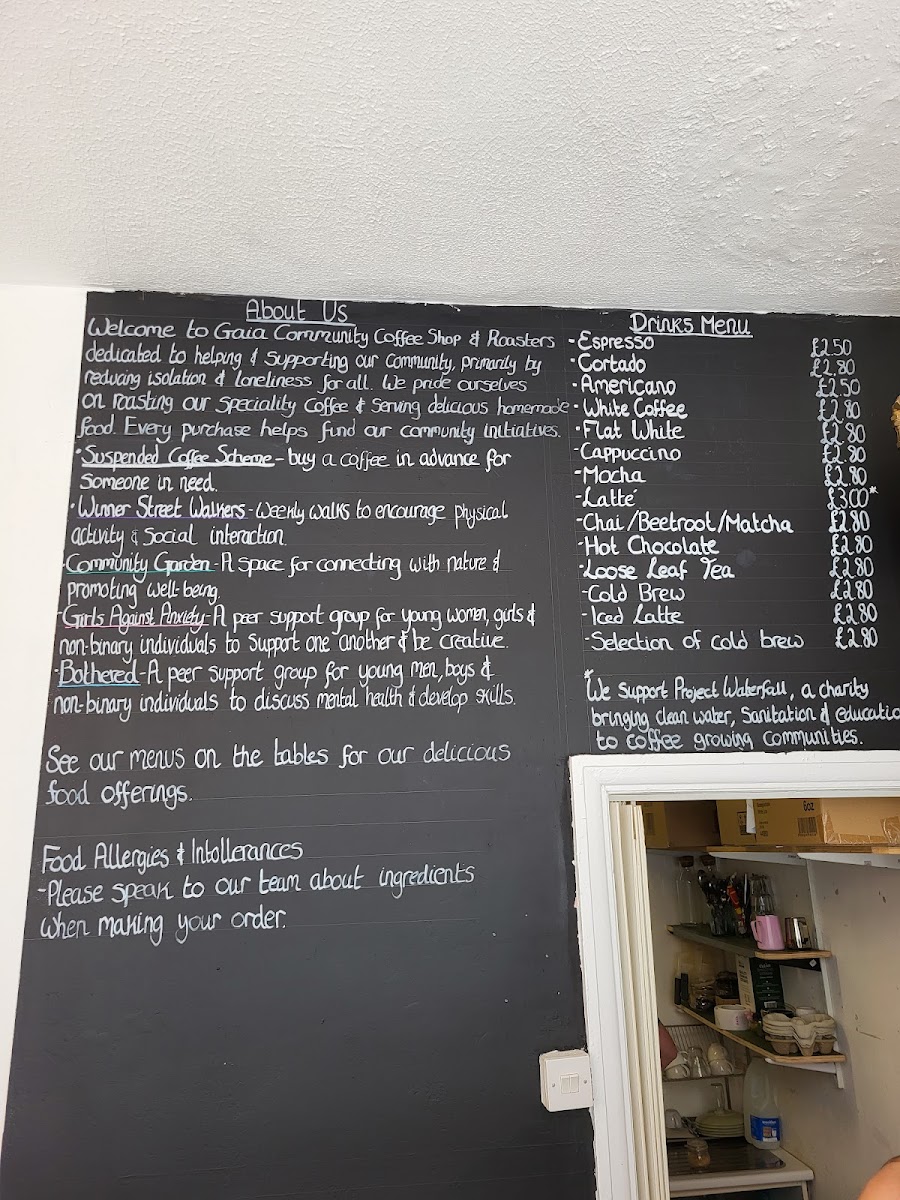 About Us
Welcome to Gaia Community Coffee Shop & Roasters
dedicated to helping & supporting our community, primarily by
reducing isolation & loneliness for all. We pride ourselves
on roasting our Speciality Coffee & serving delicious homemade
food. Every purchase helps fund our community initiatives.
·Suspended Coffee Scheme - buy a coffee in advance for
someone in need.
·Winner Street Walkers - weekly walks to encourage physical
activity & social interaction
·Community Garden - A space for connecting with nature &
promoting well-being.
·Girls Against Anxiety - A peer support group for young women, girls &
non-binary individuals to support one another & be creative.
·Bothered - A peer support group for young men, boys &
non-binary individuals to discuss mental health & develop skills.
See our menus on the tables for our delicious
food offerings.
Food Allergies & Intollerances
-Please speak to our team about ingredients
when making your order.
Drinks Menu
·Espresso £2.50
·Cortado £2.80
·Americano £2.50
·White Coffee £2.80
·Flat White £2.80
·Cappuccino £2.80
·Mocha £2.80
·Latté £3.00*
·Chai/Beetroot/Matcha £2.80
·Hot Chocolate £2.80
·Loose Leaf Tea £2.80
·Cold Brew £2.80
·Iced Latte £2.80
·Selection of cold brew £2.80
*We support Project Waterfall, a charity
bringing clean water, sanitation & educatio
to coffee growing communities.
6oz